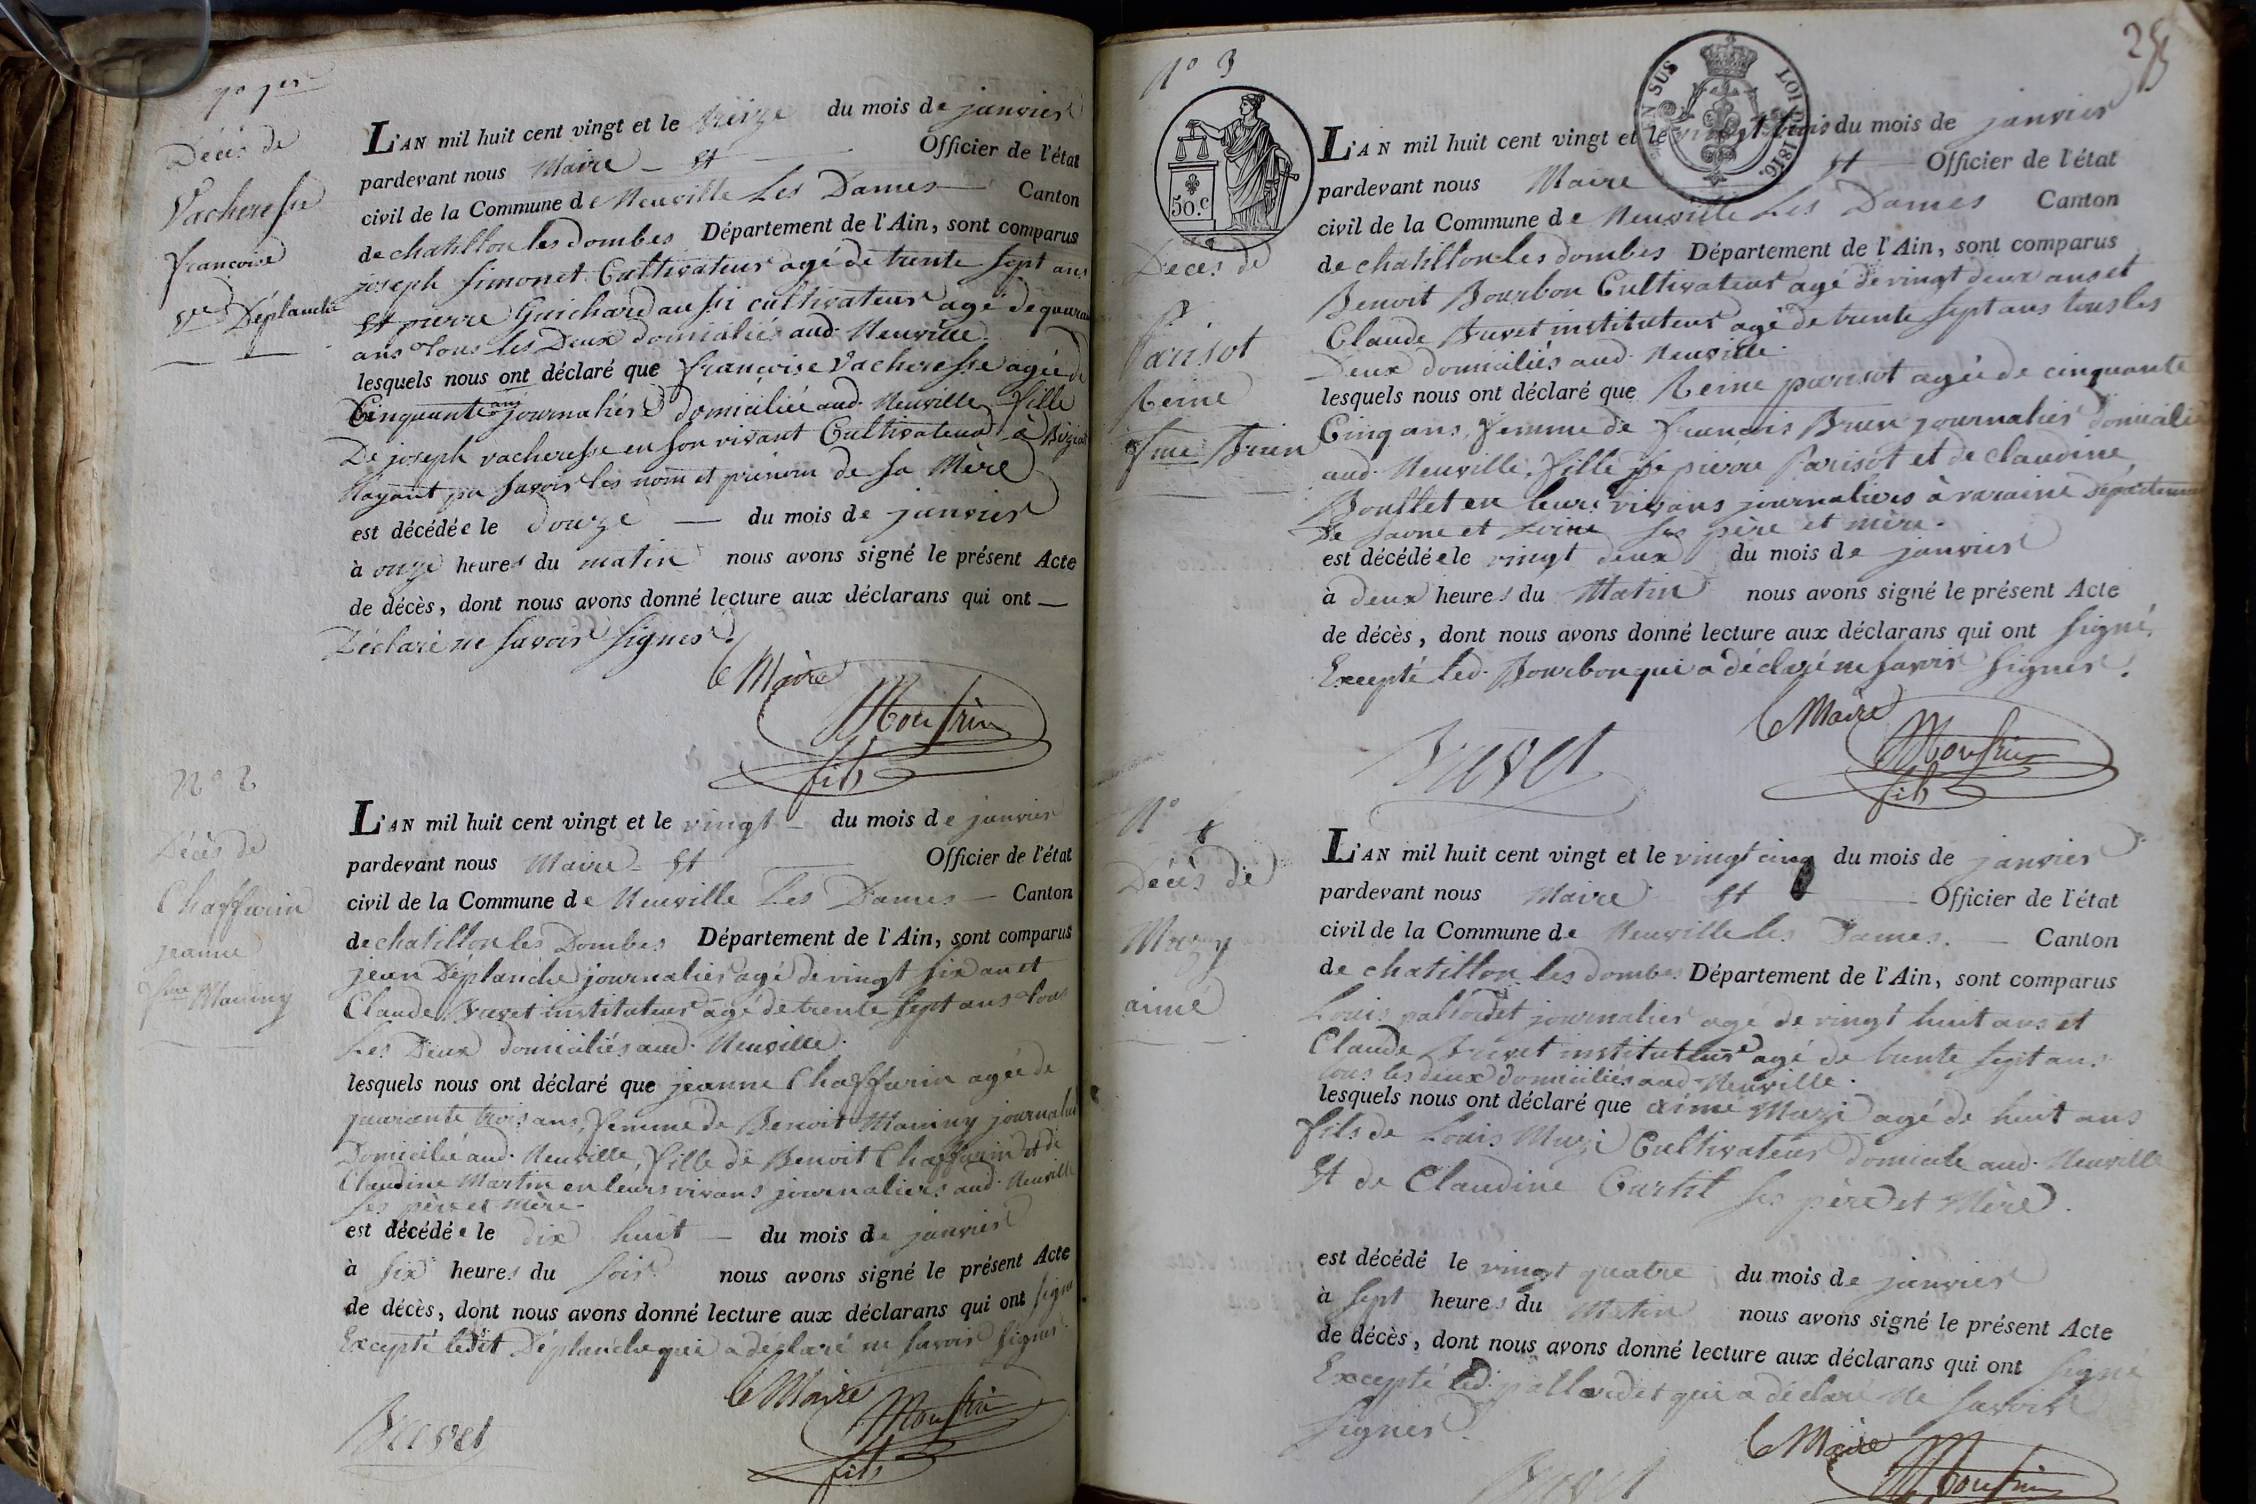 N° 1er
Décès de
Vacheresse
françoise
Vve Déplanche
L'AN mil huit cent vingt et le treize du mois de janvier
pardevant nous Maire - Et Officier de l'état
civil de la Commune de Neuville Les Dames Canton
de chatillon les dombes Département de l'Ain, sont comparus
joseph Simonet Cultivateur agé de trente sept ans
Et pierre Guichard aussi cultivateur agé de quarante
ans tous les Deux domiciliés aud. Neuville
lesquels nous ont déclaré que françoise Vacheresse agée de
Cinquante ans journalière domiciliée aud. Neuville fille
De joseph vacheresse en son vivant Cultivateur à Biziat
N'ayant pu savoir les nom et prénom de sa Mère
est décédée le douze du mois de janvier
à onze heures du matin nous avons signé le présent Acte
de décès, dont nous avons donné lecture aux déclarans qui ont
Déclaré ne savoir signer.
Le Maire
fils
N° 2
Décès de
Chaffurin
jeanne
fme Maniny
L'AN mil huit cent vingt et le vingt du mois de janvier
pardevant nous Maire - Et Officier de l'état
civil de la Commune de Neuville Les Dames Canton
de chatillon les Dombes Département de l'Ain, sont comparus
jean Déplanche journalier agé de vingt six an et
Claude Brevet instituteur agé de trente sept ans tous
Les Deux domiciliés aud. Neuville.
lesquels nous ont déclaré que jeanne Chaffurin agée de
quarante trois ans, femme de Benoit Maniny journalier
Domicilié aud. Neuville, fille de Benoit Chaffurin et de
Claudine Martin en leurs vivans journaliers aud. Neuville
ses père et mère.
est décédée le dix huit du mois de janvier
à six heures du soir nous avons signé le présent Acte
de décès, dont nous avons donné lecture aux déclarans qui ont signé
Excepté ledit Déplanche qui a déclaré ne savoir signer.
Le Maire
Brevet
fils
N° 3
50.c
LOI DE 1816.
EN SUS
Décès de
Parisot
Reine
fme Brun
L'AN mil huit cent vingt et le vingt trois du mois de janvier
pardevant nous Maire Et Officier de l'état
civil de la Commune de Neuville Les Dames Canton
de chatillon les dombes Département de l'Ain, sont comparus
Benoit Bourbon Cultivateur agé de vingt deux ans et
Claude Brevet instituteur agé de trente sept ans tous les
Deux domiciliés aud. Neuville.
lesquels nous ont déclaré que Reine parisot agée de cinquante
Cinq ans, femme de francois Brun journalier domicilié
aud. Neuville, fille de pierre Parisot et de claudine
en leurs vivans journaliers à varaine Département
De saone et Loire ses père et mère.
est décédée le vingt deux du mois de janvier
à deux heures du Matin nous avons signé le présent Acte
de décès, dont nous avons donné lecture aux déclarans qui ont signé,
Excepté led. Bourbon qui a déclaré ne savoir signer.
Le Maire
Brevet
fils
N° 4
Décès de
Muzy
aimé
L'AN mil huit cent vingt et le vingt cinq du mois de janvier
pardevant nous Maire Et Officier de l'état
civil de la Commune de Neuville les Dames. Canton
de chatillon les dombes Département de l'Ain, sont comparus
Louis pallordet journalier agé de vingt huit ans et
Claude Brevet instituteur agé de trente sept ans
tous les deux domiciliés aud. Neuville.
lesquels nous ont déclaré que aimé Muzi agé de huit ans
fils de Louis Muzi Cultivateur domicile aud. Neuville
Et de Claudine Curtil ses père et Mère.
est décédé le vingt quatre du mois de janvier
à sept heures du Matin nous avons signé le présent Acte
de décès, dont nous avons donné lecture aux déclarans qui ont signé
Excepté led. pallordet qui a déclaré ne savoir
signer.
Le Maire
Brevet